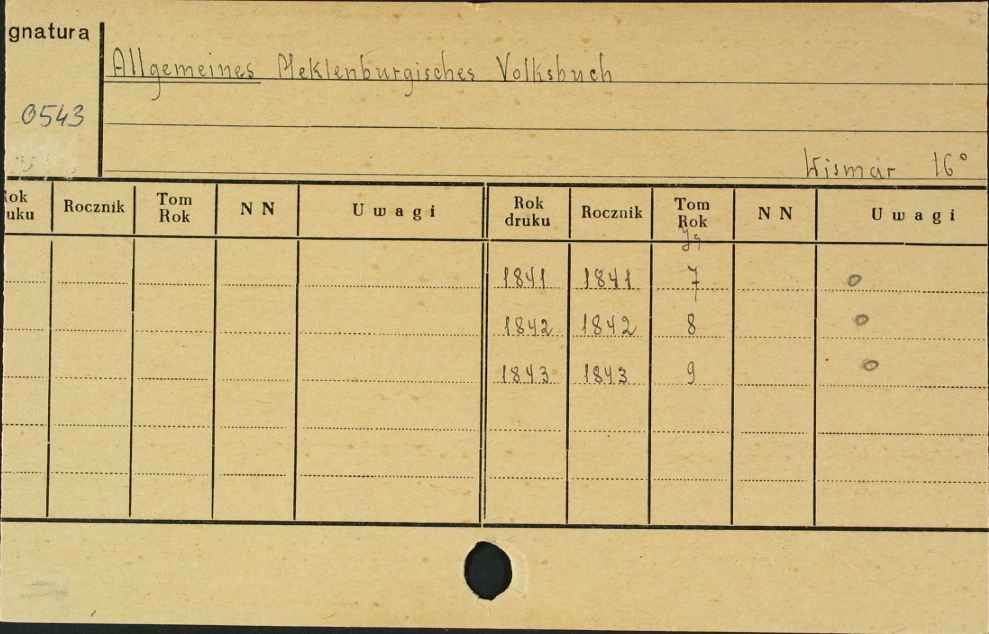 gnatura
Allgemeines Meklenburgisches Volksbuch
0543
Wismar 16°
Rok druku Rocznik Tom Rok N N Uwagi Rok druku Rocznik Tom Rok N N Uwagi
Jg
1841 1841 7 o
1842 1842 8 o
1843 1843 9 o